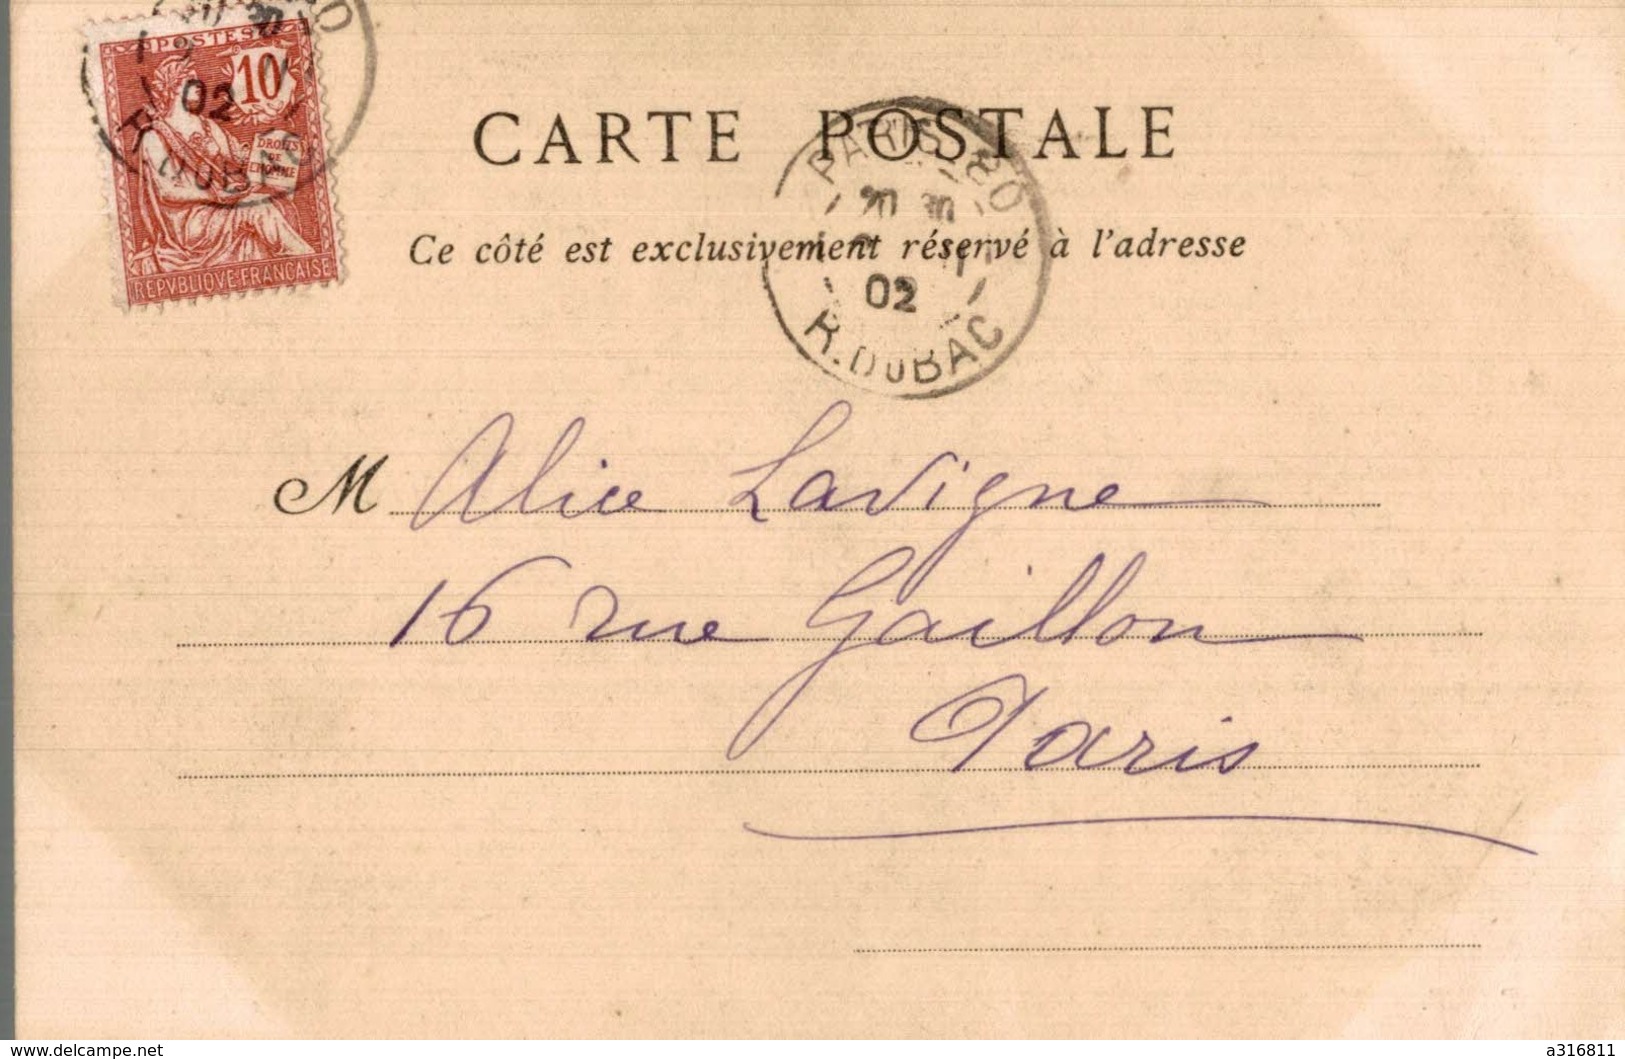 POSTES
10
DROITS
DE
L'HOMME
REPVBLIQVE FRANÇAISE
02
CARTE POSTALE
PARIS 80
02
R. DU BAC
Ce côté est exclusivement réservé à l'adresse
M Alice Lavigne
16 rue Gaillon
Paris
www.delcampe.net
a316811